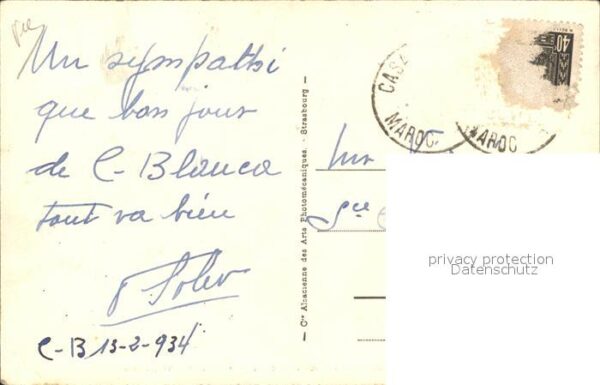 Un sympathi
que bon jour
de C-Blanca
tout va bien
C-B 13-2-934
Cie Alsacienne des Arts Photomécaniques - Strasbourg
MAROC
MAROC
40
privacy protection
Datenschutz